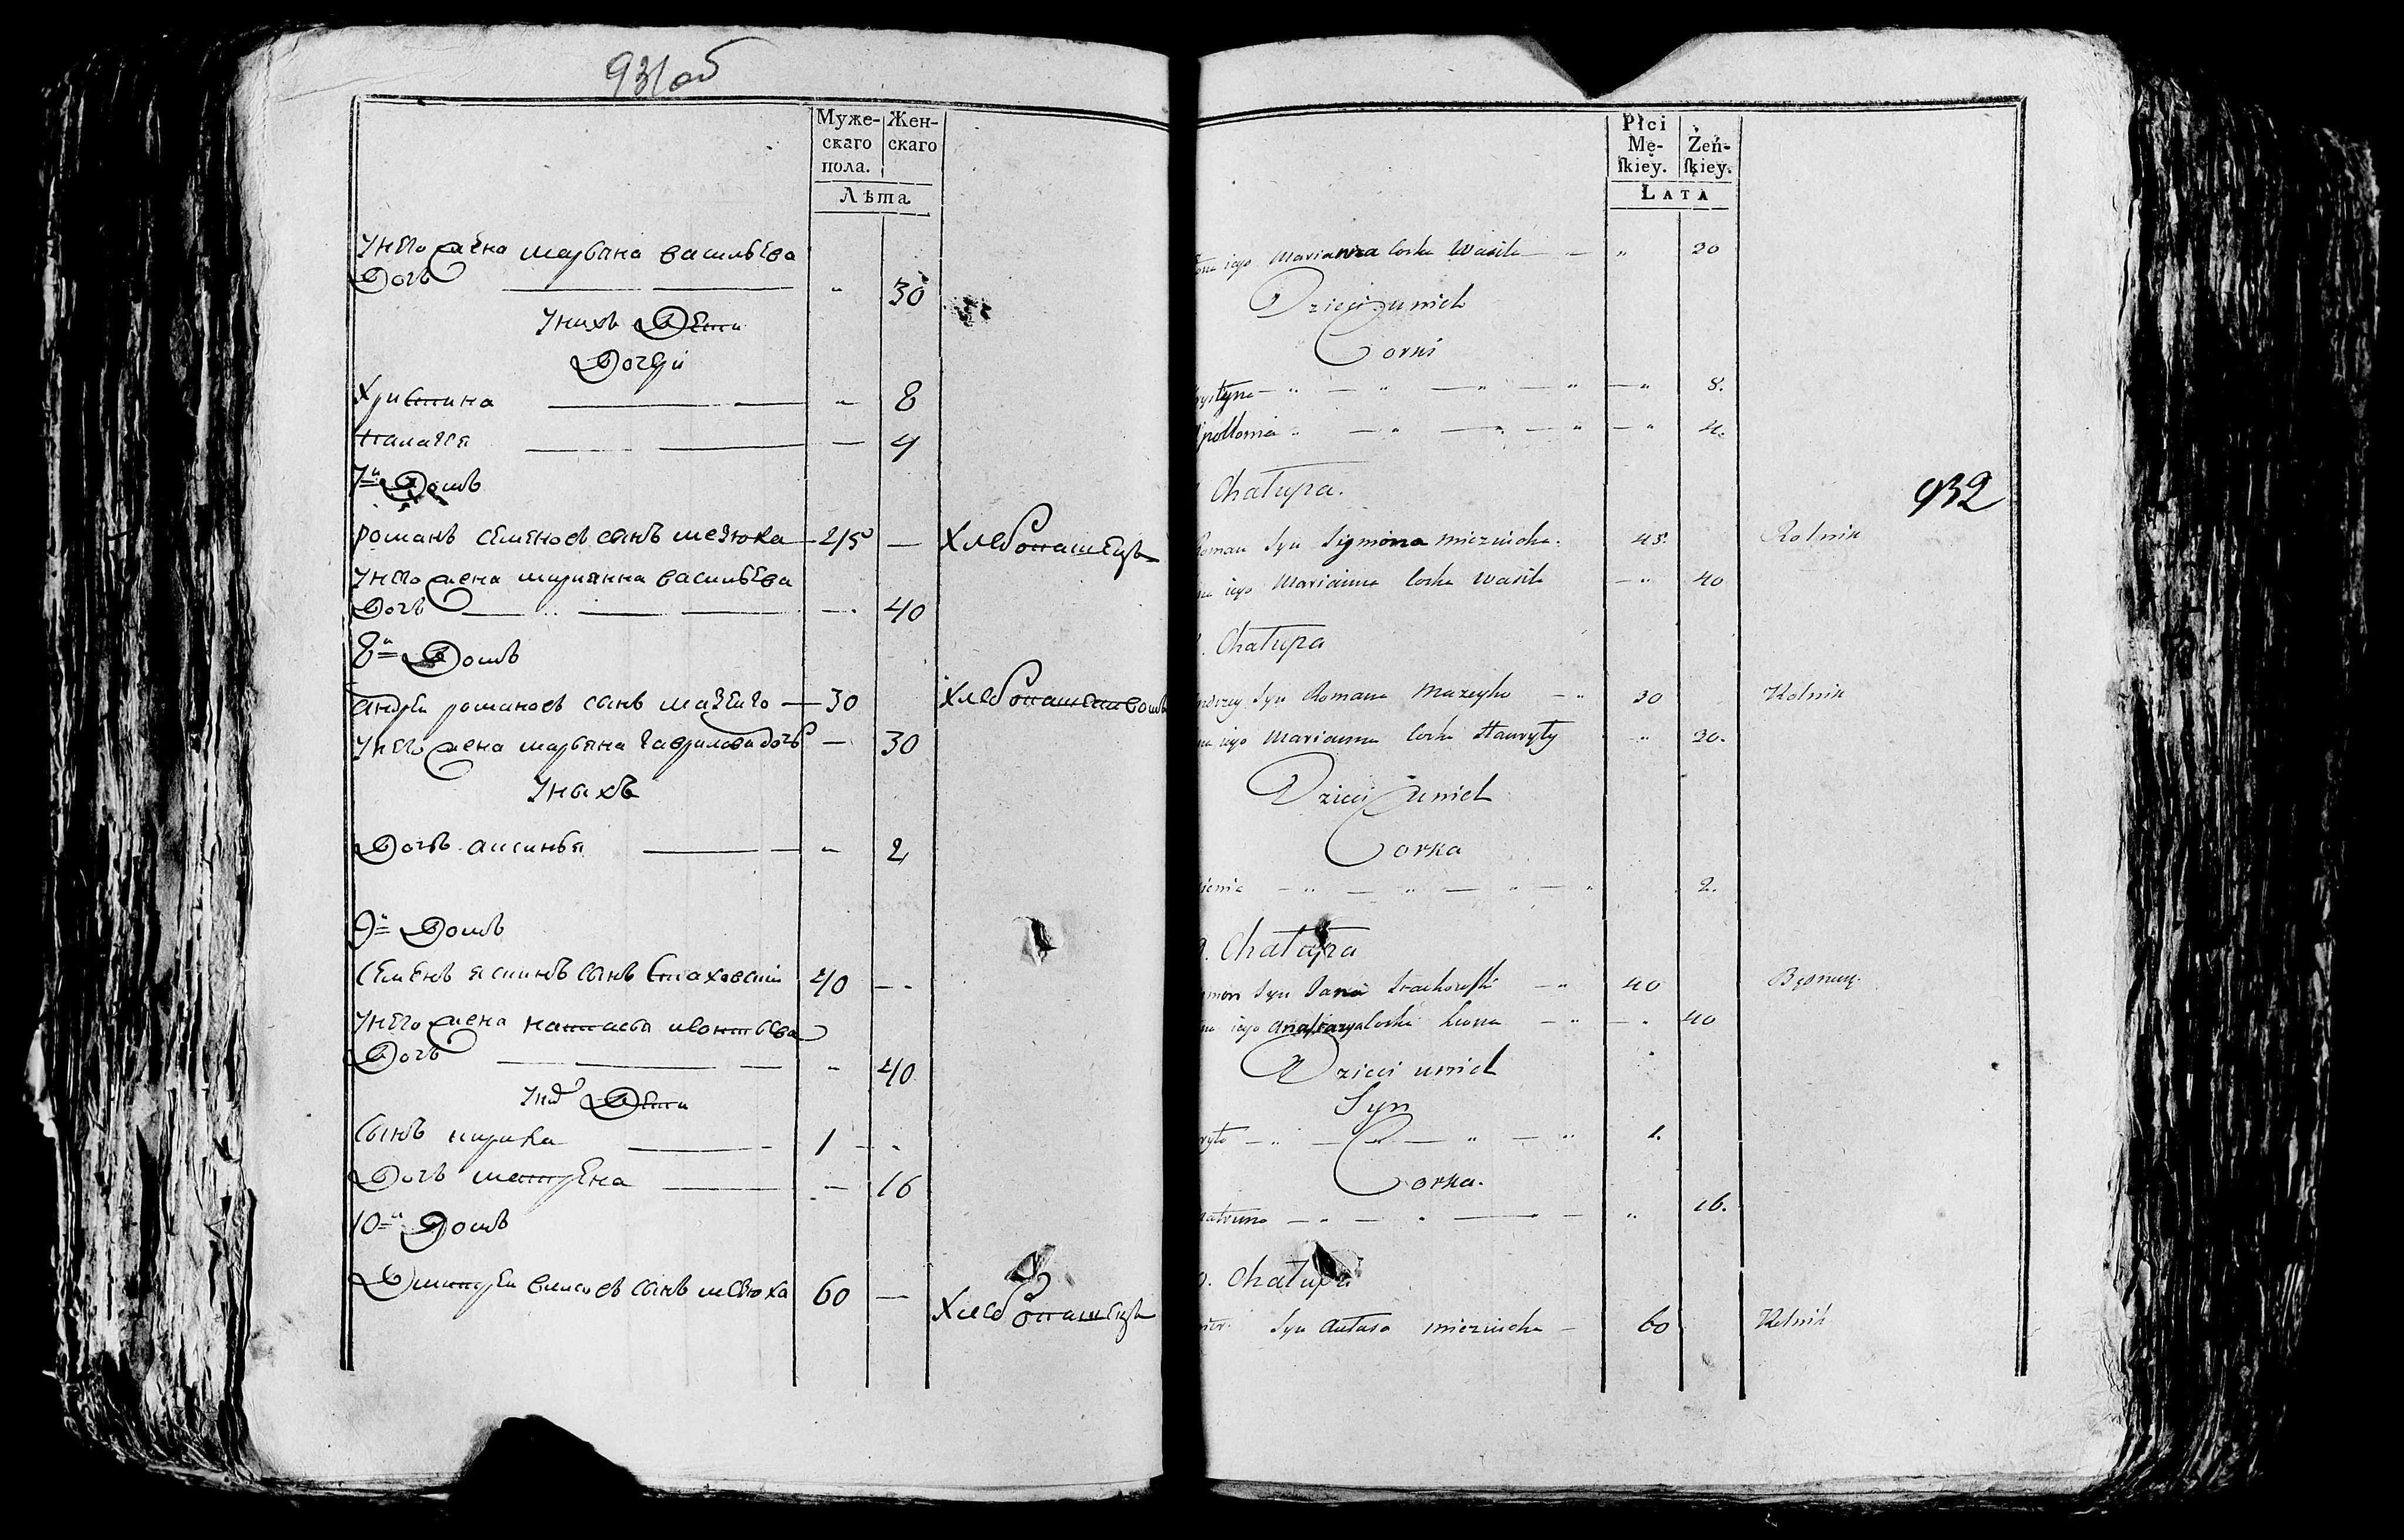 931об
Муже-
скаго
пола.
Жен-
скаго
Лѣта
унего жена марьяна васильева
дочь — — " 30
унихъ дети
дочери
Христина — — " 8
палагея — — — 4
7й домъ
романъ семеновъ сынъ мезюка — 45 — хлебопашецъ
унего жена марианна васильева
дочь — — — 40
8й домъ
андрей романовъ сынъ мазейко — 30 хлебопашествомъ
унего жена марьяна гаврилова дочь — 30
унихъ
дочь аксинья — — " 2
9й домъ
семенъ яс сынъ стаховски 40 —
унего жена настасья леонтьева
дочь — — — " 40
уних дети
сынъ кирила — 1 — -
дочь матрена — — 16
10й домъ
Дмитрей сынъ мезюка 60 — хлебопашецъ
Płci
Mę-
skiey.
Żeń-
skiey.
LATA
żona iego Marianna Corka Wasila — " 30
Dzieci u nich
Corki
rystyna — " — " — " — " — " 8.
Apollonia " — " — " — " — " 4.
932
Chałupa.
Roman Syn Symona mieziucha. 45. Rolnik
na iego Marianna Corka Wasila — " 40
. Chałupa
ndrzey Syn Romana Mazeyko — " 30 Rolnik
na iego Marianna Corka Hawryły " 30.
Dzieci u nich
Corka
ienia — " — " — " — " 2.
9. Chałupa
ymon Syn Jana Stachowski — " 40
na iego Anastazya Corka Leona — " — " 40
Dzieci u nich
Syn
ryło — " — " — " — " 1.
Corka.
matruna — " — " — — " 16.
0. Chałupa
Syn mieziucha — 60 Rolnik